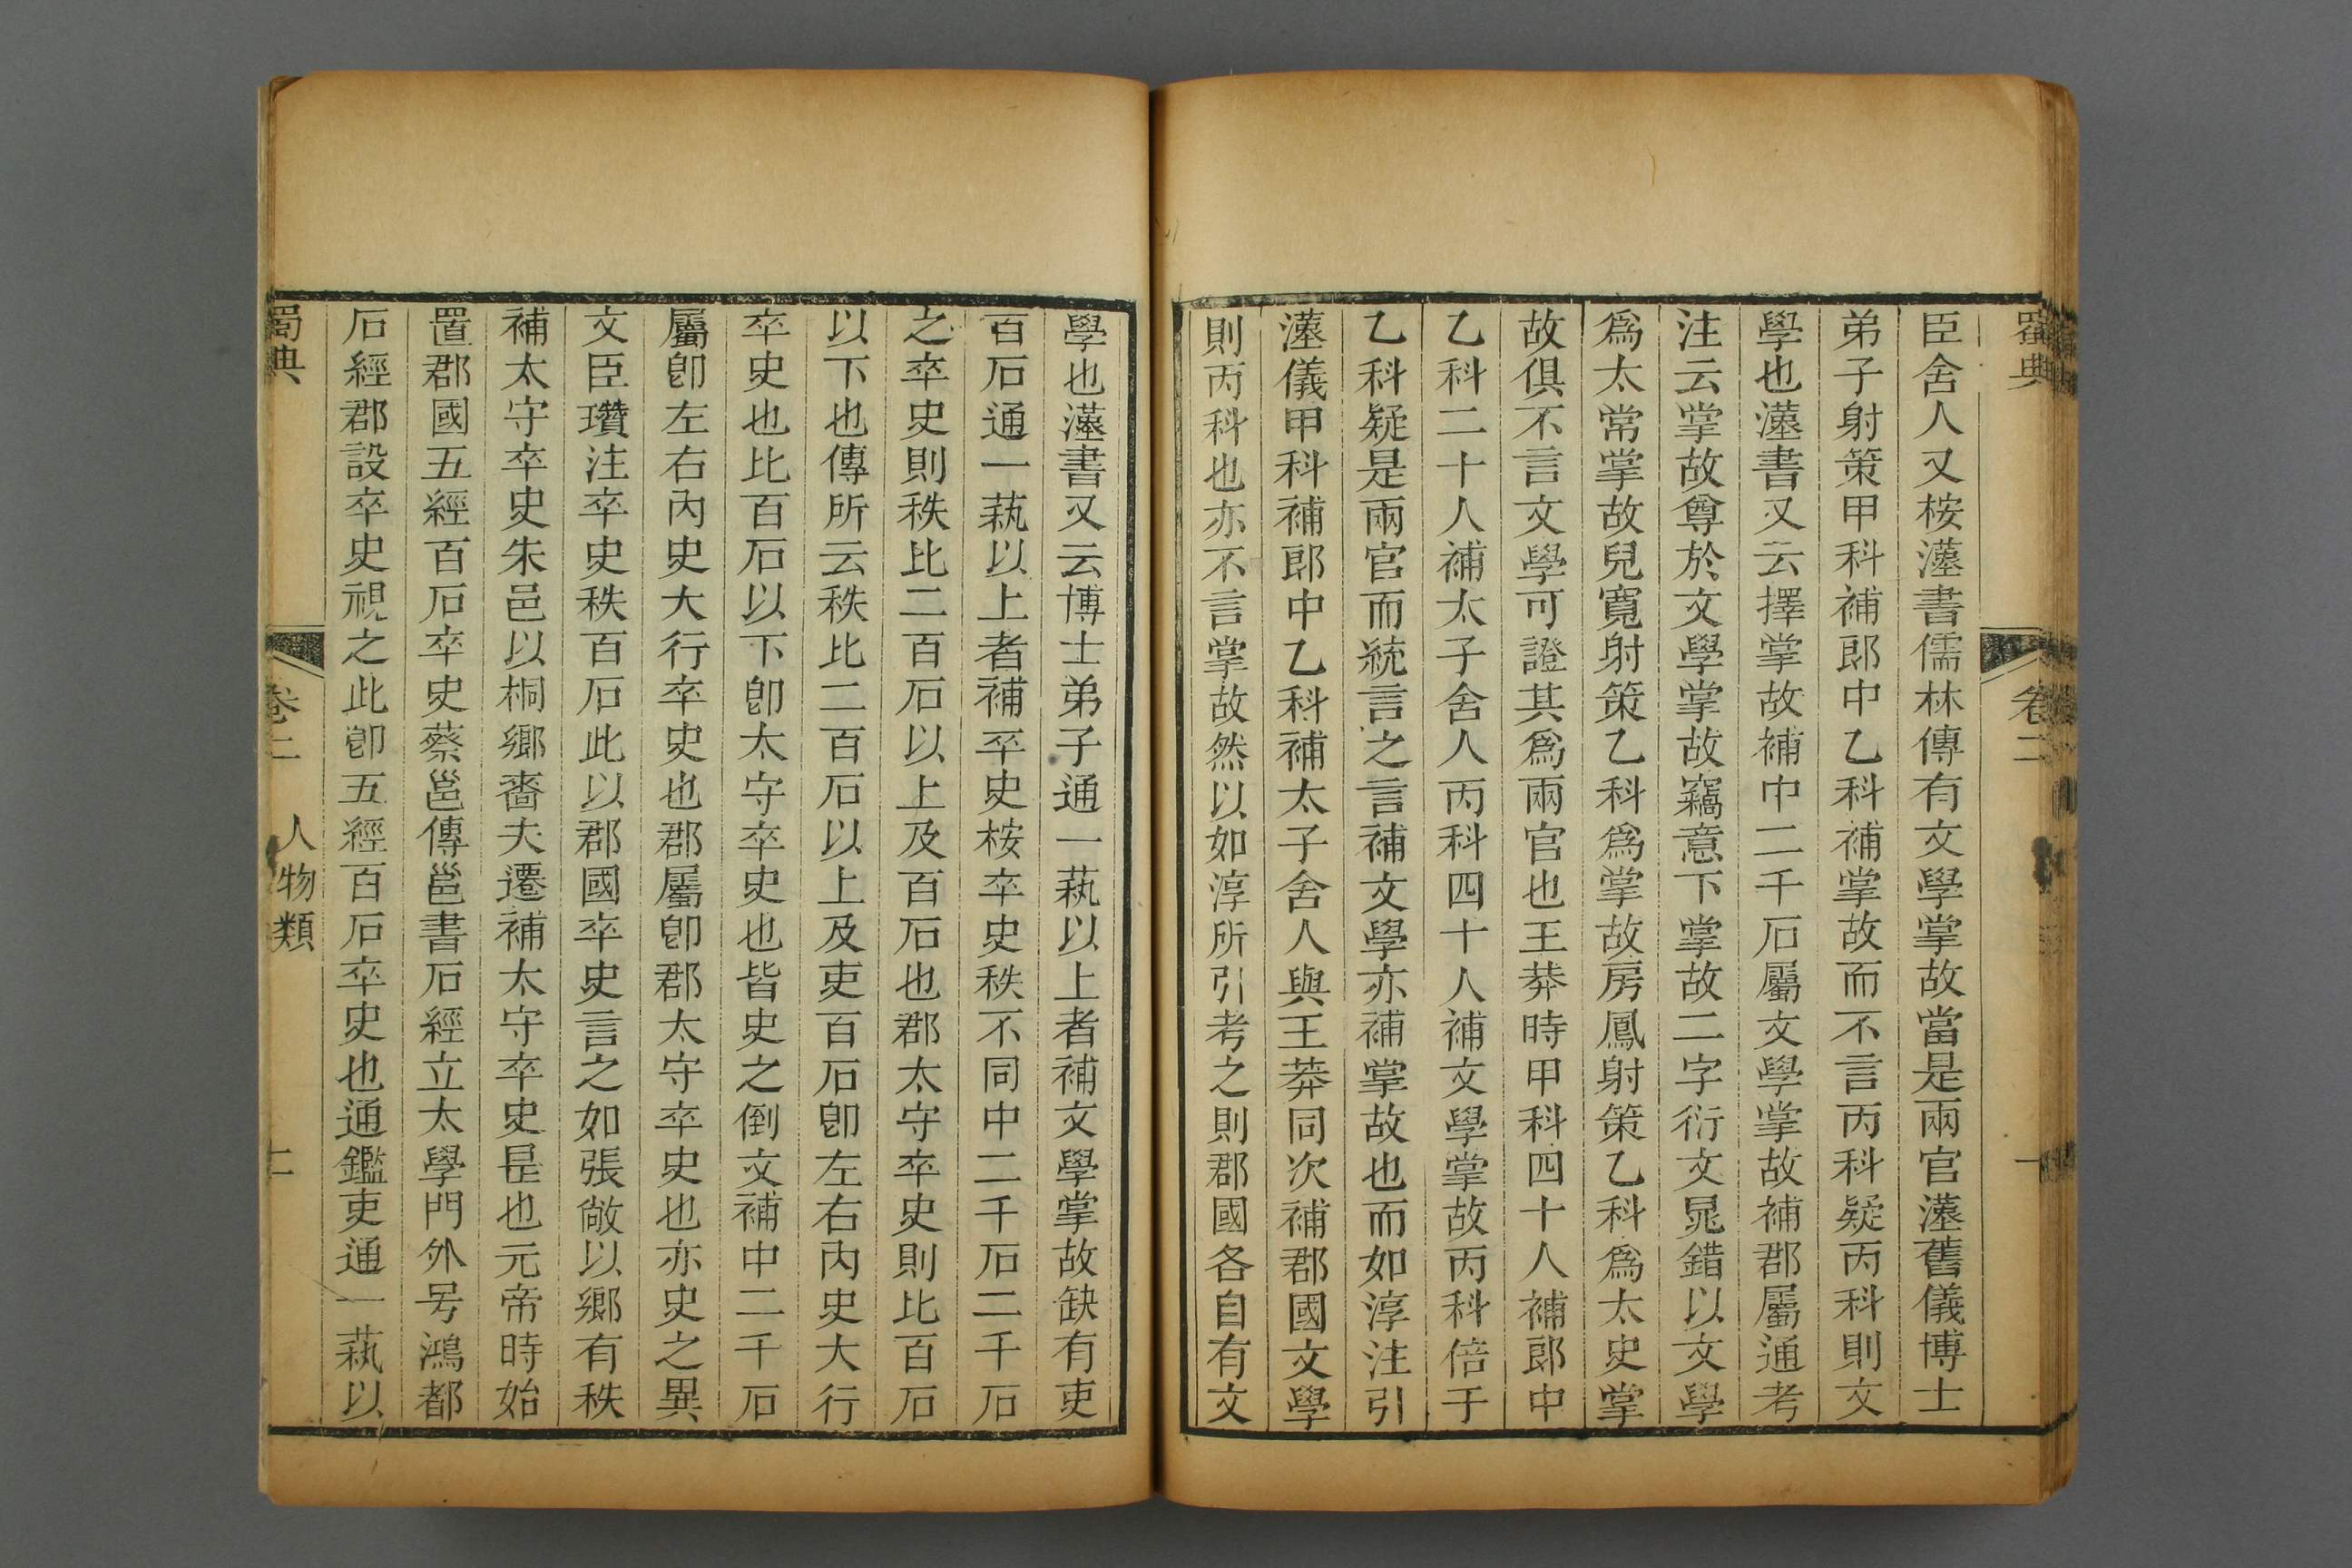 蜀典 卷二 一
臣舍人又桉漢書儒林傳有文學掌故當是兩官漢舊儀博士
弟子射策甲科補郎中乙科補掌故而不言丙科疑丙科則文
學也漢書又云擇掌故補中二千石屬文學掌故補郡屬通考
注云掌故尊於文學掌故竊意下掌故二字衍文鼂錯以文學
爲太常掌故兒寬射策乙科爲掌故房鳳射策乙科爲太史掌
故俱不言文學可證其爲兩官也王莽時甲科四十人補郎中
乙科二十人補太子舍人丙科四十人補文學掌故丙科倍于
乙科疑是兩官而統言之言補文學亦補掌故也而如淳注引
漢儀甲科補郎中乙科補太子舍人與王莽同次補郡國文學
則丙科也亦不言掌故然以如淳所引考之則郡國各自有文
學也漢書又云博士弟子通一蓺以上者補文學掌故缺有吏
百石通一蓺以上者補卒史桉卒史秩不同中二千石二千石
之卒史則秩比二百石以上及百石也郡太守卒史則比百石
以下也傳所云秩比二百石以上及吏百石卽左右內史大行
卒史也比百石以下卽太守卒史也皆史之倒文補中二千石
屬卽左右內史大行卒史也郡屬卽郡太守卒史也亦史之異
文臣瓚注卒史秩百石此以郡國卒史言之如張敞以鄉有秩
補太守卒史朱邑以桐鄉嗇夫遷補太守卒史是也元帝時始
置郡國五經百石卒史蔡邕傳邕書石經立太學門外号鴻都
石經郡設卒史視之此卽五經百石卒史也通鑑吏通一蓺以
蜀典 卷二 人物類 二